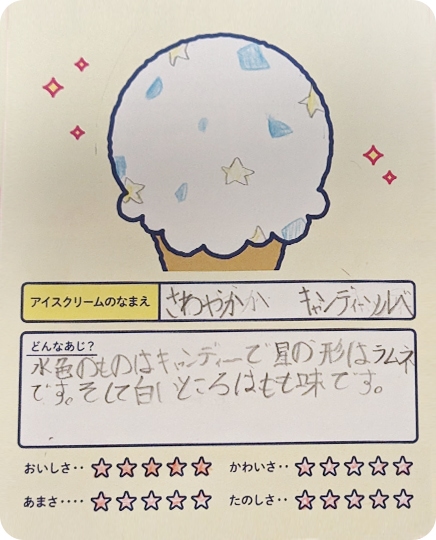 アイスクリームのなまえ
さわやかか キャンディーソルベ
どんなあじ?
水色のものはキャンディーで星の形はラムネ
です。そして白いところはもも味です。
おいしさ‥ ☆☆☆☆☆ かわいさ‥ ☆☆☆☆☆
あまさ‥‥ ☆☆☆☆☆ たのしさ‥ ☆☆☆☆☆